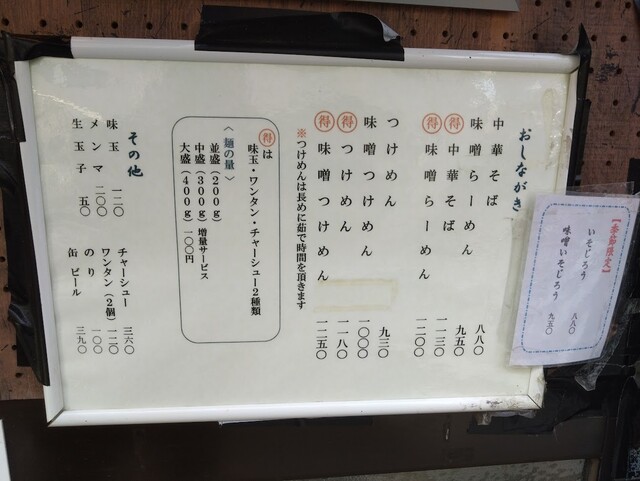 おしながき
中華そば 八八〇
味噌らーめん 九五〇
㊝中華そば 一一三〇
㊝味噌らーめん 一二〇〇
つけめん 九三〇
味噌つけめん 一〇〇〇
㊝つけめん 一一八〇
㊝味噌つけめん 一二五〇
※つけめんは長めに茹で時間を頂きます
㊝は
味玉・ワンタン・チャーシュー2種類
〈麺の量〉
並盛(200g)
中盛(300g)増量サービス
大盛(400g)一〇〇円
その他
味玉 一二〇
メンマ 二〇〇
生玉子 五〇
チャーシュー 三六〇
ワンタン(2個) 一二〇
のり 一〇〇
缶ビール 三九〇
【季節限定】
いそじろう 八八〇
味噌いそじろう 九五〇